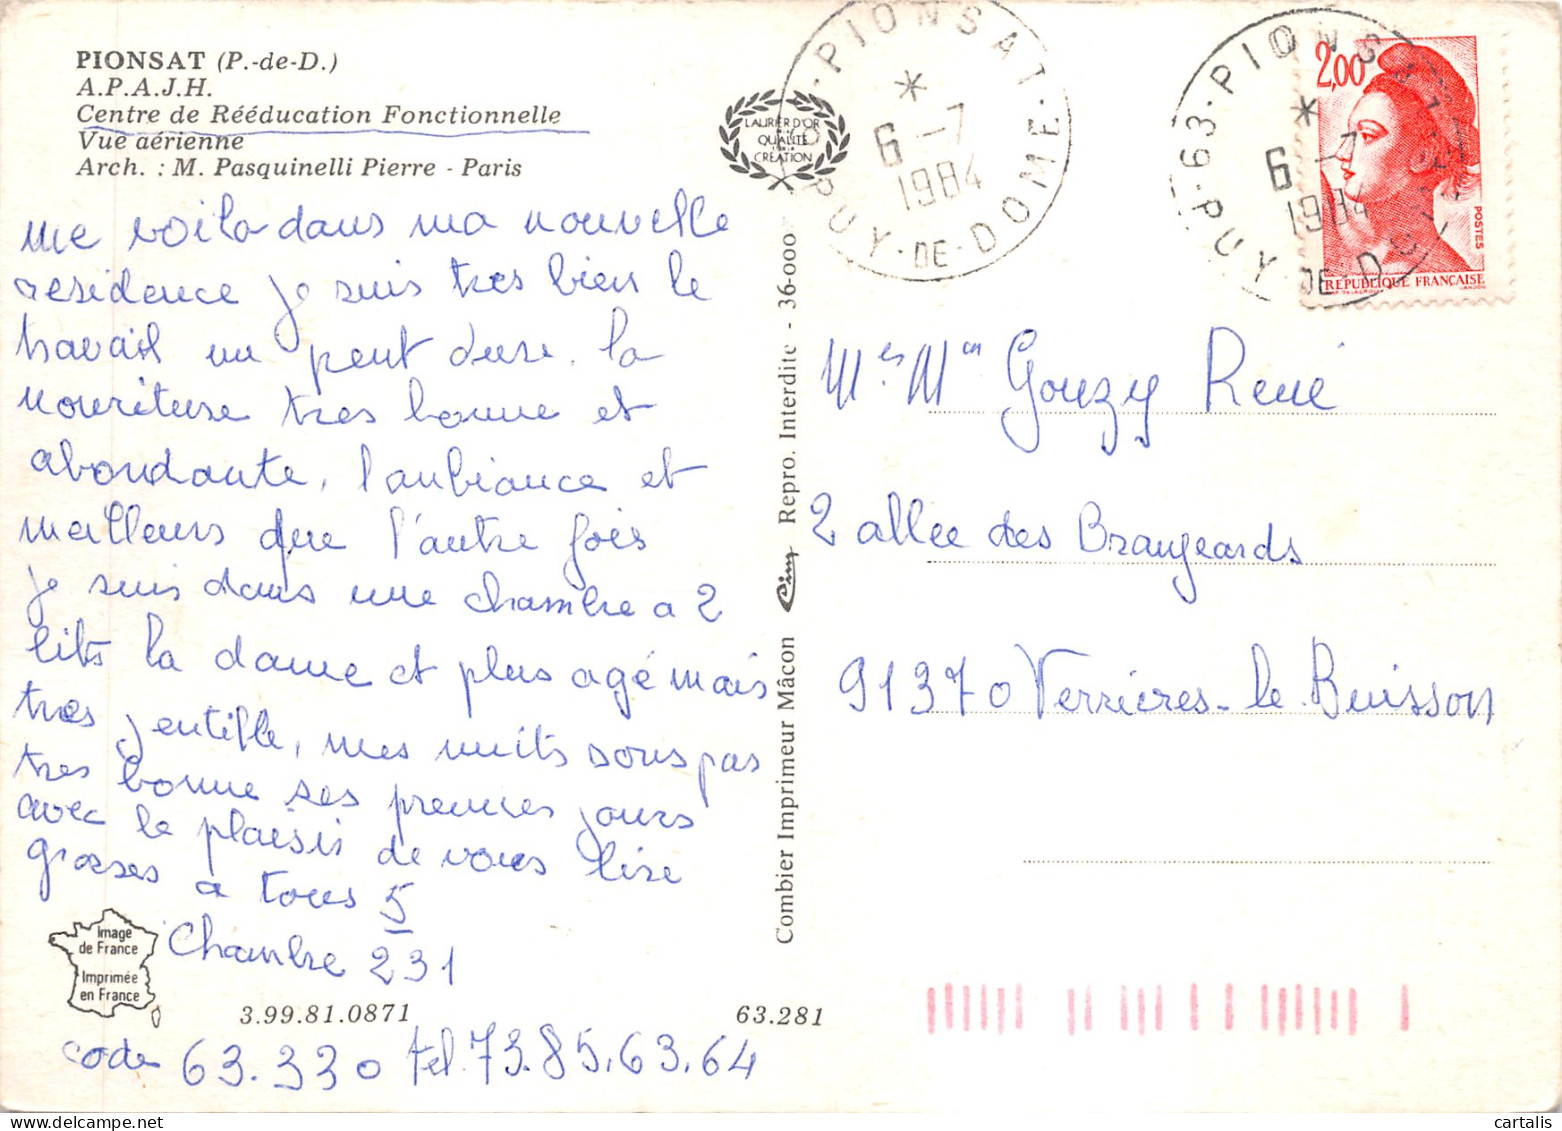 PIONSAT (P.-de-D.)
A.P.A.J.H.
Centre de Rééducation Fonctionnelle
Vue aérienne
Arch. : M. Pasquinelli Pierre - Paris
me voila dans ma nouvelle
residence je suis tres bien le
travail un peut dure. la
nouriture tres bonne et
abondante, l'anbiance et
meilleurs que l'autre fois
je suis dans une chambre a 2
lits la dame et plus agé mais
tres jentille, mes nuits sous pas
tres bonne ses premies jours
avec le plaisir de vous lire
grosses a tous 5
Chambre 231
Image
de France
Imprimée
en France
3.99.81.0871
63.281
code 63.330 tel.73.85.63.64
LAURIER D'OR
QUALITÉ
CRÉATION
PIONSAT
*
6 -7
1984
PUY-DE-DOME
Combier Imprimeur Mâcon Cim Repro. Interdite - 36-000
63 · PIONSAT
*
6 -7
1984
PUY-DE-DO
2,00
POSTES
REPUBLIQUE FRANÇAISE
Mr et Mm Gouzy René
2 allee des Braujeards
91370 Verrières-le-Buisson
cartalis